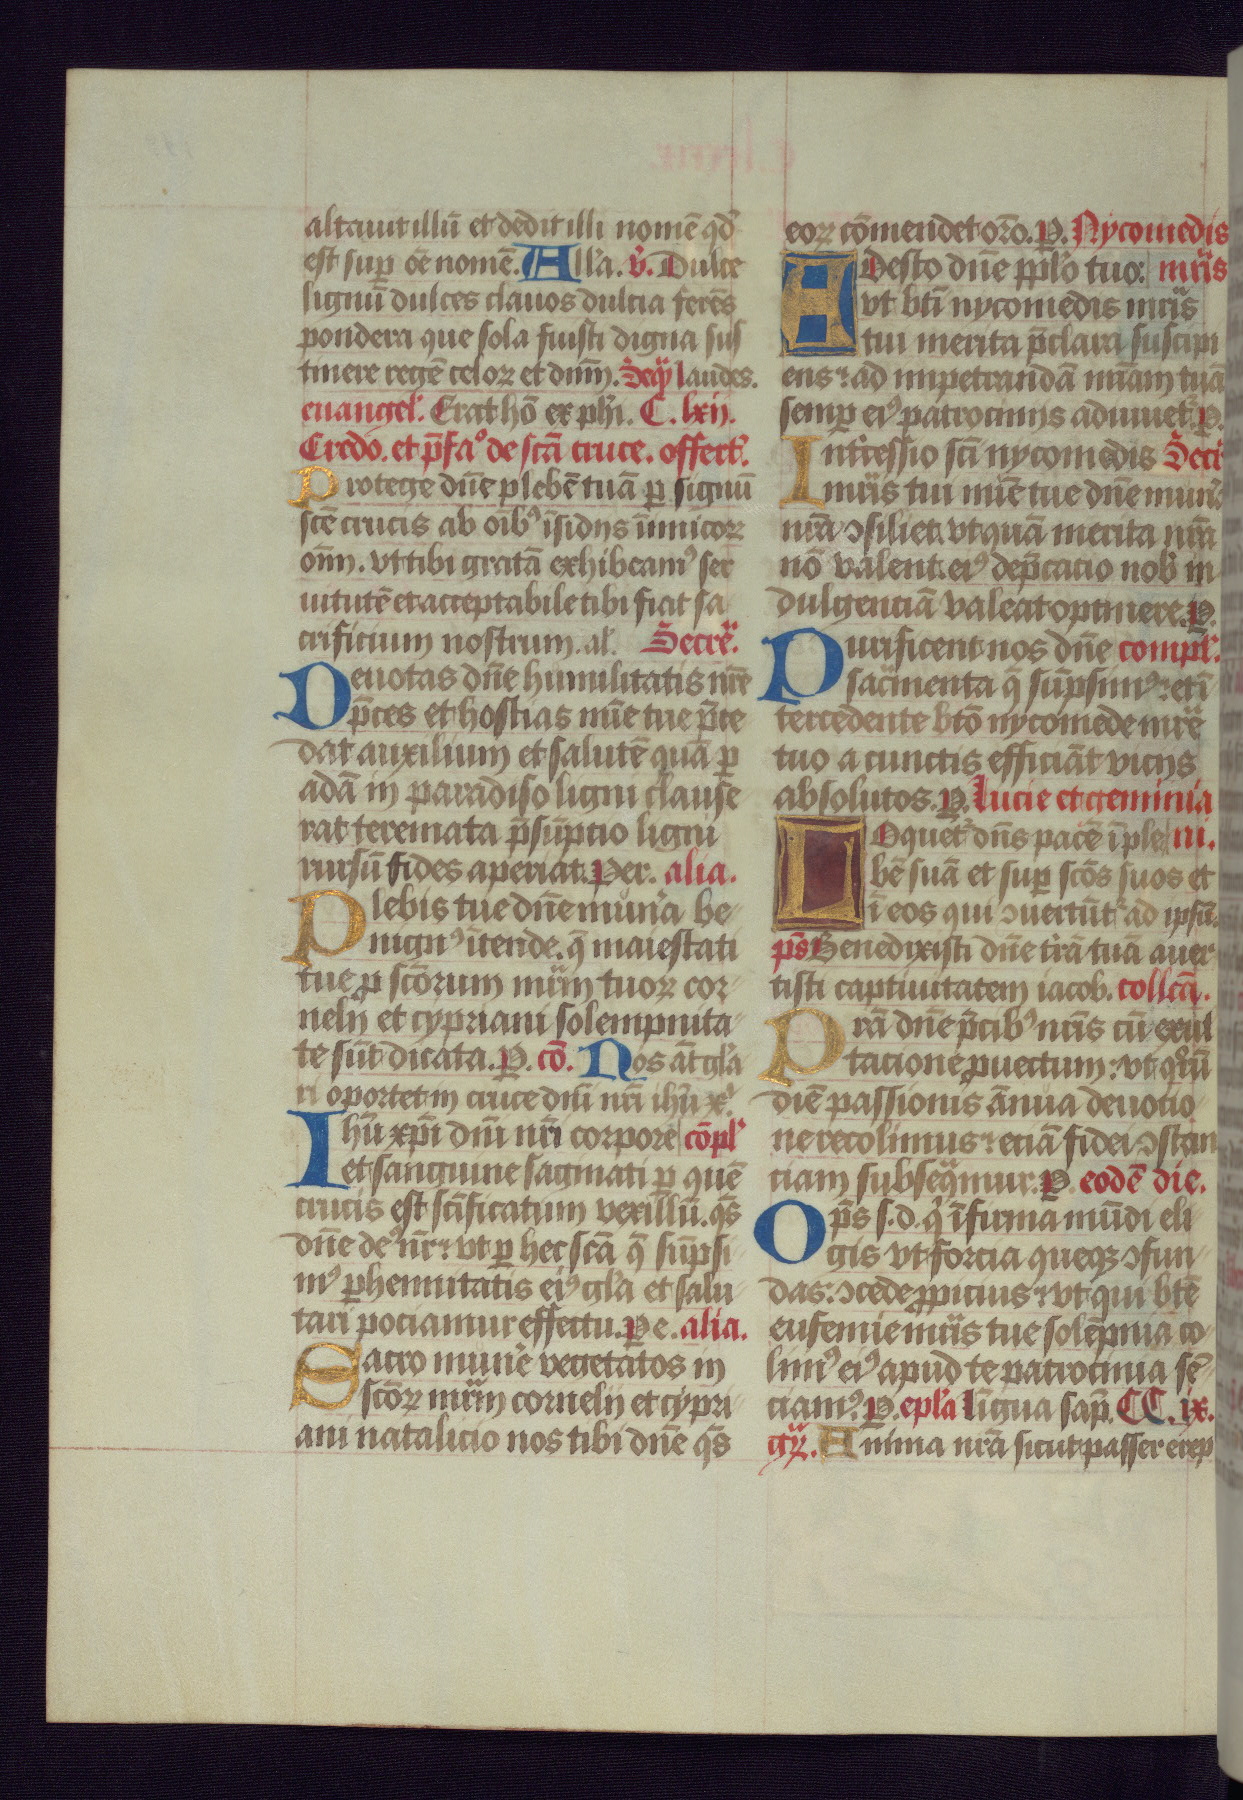 altauit illū et dedit illi nomē qd̄
est sup̱ oē nomē. All'a. v̄. Dulce
lignū dulces clauos dulcia ferēs
pondera que sola fuisti digna sus
tinere regē celoꝝ et dnm̄. Seq̄ laudes.
euangel'. Erat hō ex ph'i. C. lxij.
Credo. et p̄fa° de scā cruce. offert'.
Protege dn̄e plebē tuā p̱ signū
scē crucis ab oib' īsidijs īimicoꝝ
om̄. vt tibi gratā exhibeam' ser
uitutē et acceptabile tibi fiat sa
crificium nostrum. al'. Secre.
Deuotas dn̄e humilitatis nr̄e
p̄ces et hostias mīe tue p̄ce
dat auxilium et salutē quā p̱
adā in paradiso ligni clause
rat temerata p̄sūptio ligni
rursū fides aperiat. Per. alia.
Plebis tue dn̄e mun'a be
nign' ītende. q̄ maiestati
tue ꝓ scōrum mr̄m tuoꝝ cor
nelij et cypriani solempnita
te sūt dicata. P. cō. Nos āt gl'a
ri oportet in cruce dn̄i nr̄i ih'u x'.
Ihū xp̄i dn̄i nr̄i corpore cōpl'
et sanguine saginati p̱ quē
crucis est scīficatum vexillū. qs̄
dn̄e de' nr̄ ut p̱ hec scā q̄ sūpsi
m' p̱hennitatis ei' gl'a et salu
tari pociamur effectu. Pe. alia.
Sacro mun'e vegetatos in
scōꝝ mr̄m cornelij et cypri
ani natalicio nos tibi dn̄e qs̄
eoꝝ cōmendet orō. P. Nycomedis
Adesto dn̄e pp̄l'o tuo: mr̄is
vt bt̄i nycomedis mr̄is
tui merita p̄clara suscipi
ens ad impetrandā mīam tuā
semp̱ ei' patrocinijs adiuuet'. P.
Int'cessio scī nycomedis Secr'
mr̄is tui mīe tue dn̄e mun'a
nr̄a ↄsiliet. vt quā merita nr̄a
nō valent. ei' dep̄catio nob' in
dulgenciā valeat optinere. P.
Purificent nos dn̄e compl'.
sac̄menta q̄ sūpsim'. et ī
tercedente btō nycomede mr̄e
tuo a cunctis efficiāt vicijs
absolutos. P. Lucie et geminia
Loquet' dn̄s pacē ī ple ni.
bē suā et sup̱ scōs suos et
ī eos qui ↄuertūt' ad ipsū.
ps̄ Benedixisti dn̄e t'rā tuā auer
tisti captiuitatem iacob. collcā.
Prā dn̄e p̄cib' nr̄is cū exul
tacione ꝓuectum: vt q'rū
diē passionis ānua deuotio
ne recolimus eciā fidei ↄstan
ciam subseq̄mur. P. eodē die.
Op̄s s. d. q' īfirma mūdi eli
gis vt forcia queqꝫ ↄfun
das: ↄcede ꝓpicius vt qui btē
eufemie mr̄is tue solēpnia co
lim' ei' apud te patrocinia sē
ciam'. P. epl'a Līgua sap̄. CC. ix.
gr̄. Anima nr̄a sicut passer erep